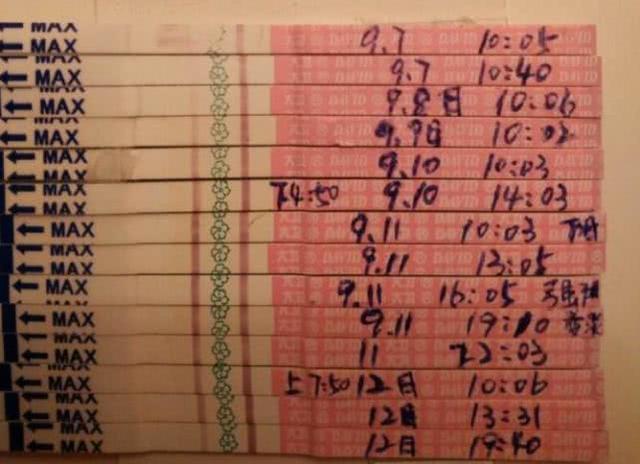 MAX 9.7 10:05
MAX 9.7 10:40
MAX 9.8日 10:06
MAX 9.9日 10:02
MAX 9.10 10:03
MAX 9.10 14:03
MAX 9.11 10:03
MAX 9.11 13:05
MAX 9.11 16:05
MAX 9.11 19:10
MAX 11 22:03
MAX 上7:50 12日 10:06
MAX 12日 13:31
MAX 12日 19:40